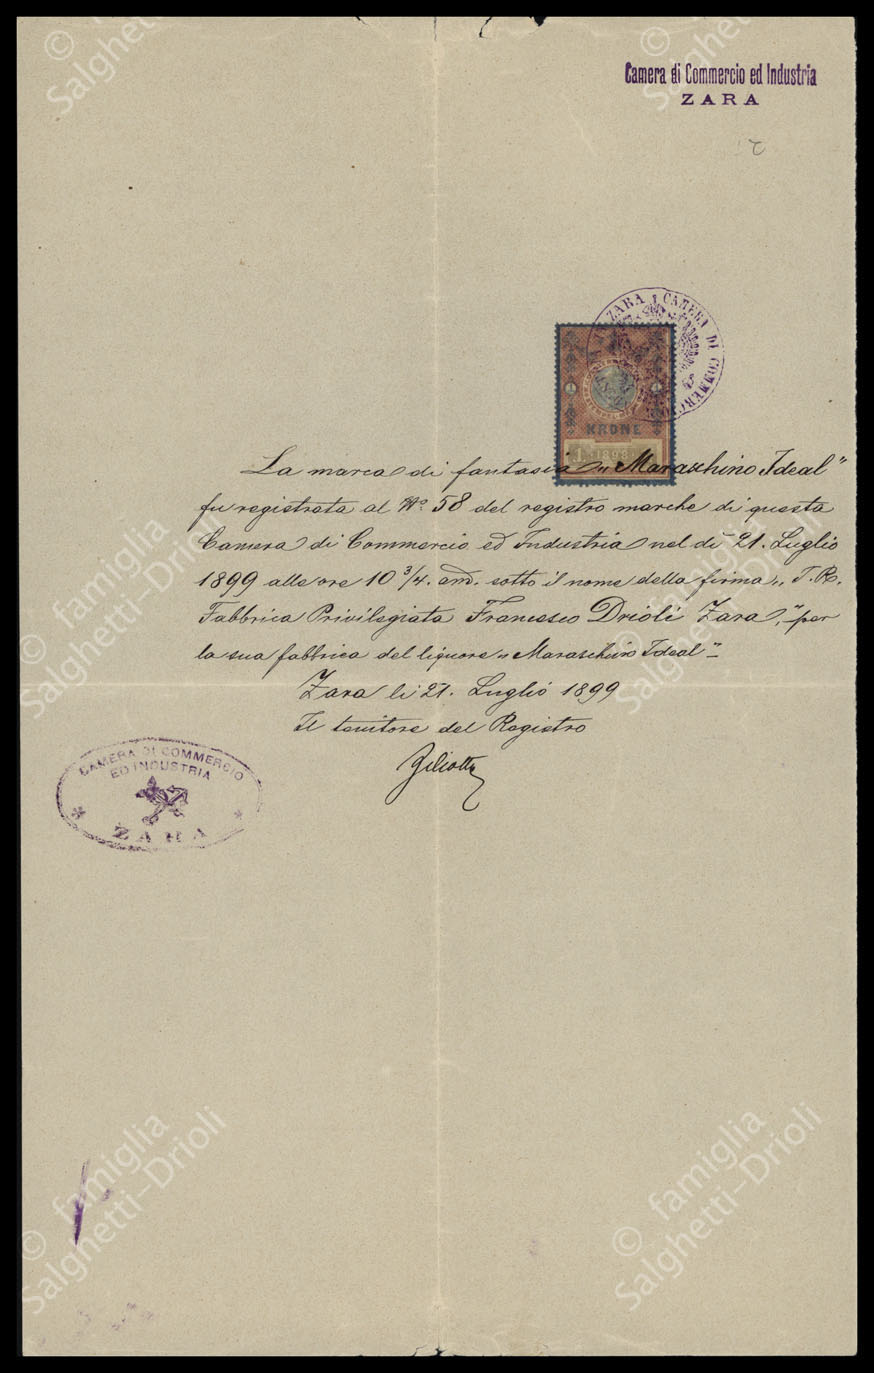 Camera di Commercio ed Industria
ZARA
CAMERA DI COMMERCIO
ZARA
1 1
KRONE
1 1898
La marca di fantasia „Maraschino Ideal”
fu registrata al No. 58 del registro marche di questa
Camera di Commercio ed Industria nel dì 21. Luglio
1899 alle ore 10 3/4. am. sotto il nome della firma „I. R.
Fabbrica Privilegiata Francesco Drioli Zara,” per
la sua fabbrica del liquore „Maraschino Ideal”
Zara li 21. Luglio 1899
Il tenitore del Registro
CAMERA DI COMMERCIO
ED INDUSTRIA
ZARA
© famiglia
Salghetti-Drioli
© famiglia
Salghetti-Drioli
© famiglia
Salghetti-Drioli
© famiglia
Salghetti-Drioli